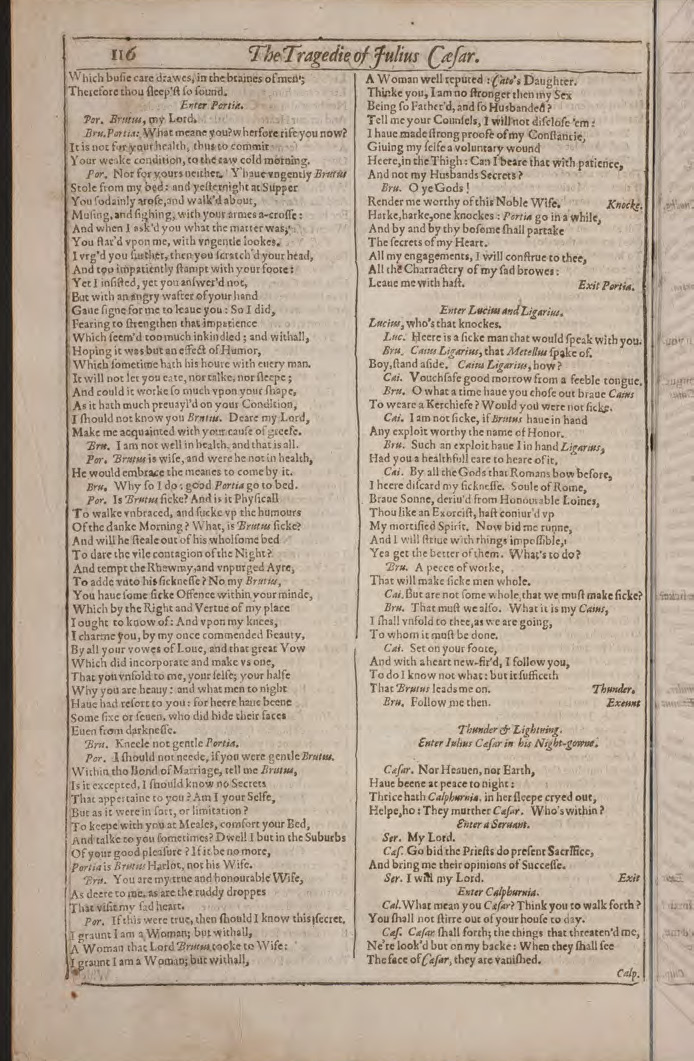 116
The Tragedie of Julius Cæsar.
Which busie care drawes, in the braines of men;
Therefore thou sleep'st so sound.
Enter Portia.
Por. Brutus, my Lord.
Bru. Portia: What meane you? wherfore rise you now?
It is not for your health, thus to commit
Your weake condition, to the raw cold morning.
Por. Nor for yours neither. Y'haue vngently Brutus
Stole from my bed: and yesternight at Supper
You sodainly arose, and walk'd about,
Musing, and sighing, with your armes a-crosse:
And when I ask'd you what the matter was,
You star'd vpon me, with vngentle lookes.
I vrg'd you further, then you scratch'd your head,
And too impatiently stampt with your foote:
Yet I insisted, yet you answer'd not,
But with an angry wafter of your hand
Gaue signe for me to leaue you: So I did,
Fearing to strengthen that impatience
Which seem'd too much inkindled; and withall,
Hoping it was but an effect of Humor,
Which sometime hath his houre with euery man.
It will not let you eate, nor talke, nor sleepe;
And could it worke so much vpon your shape,
As it hath much preuayl'd on your Condition,
I should not know you Brutus. Deare my Lord,
Make me acquainted with your cause of greefe.
Bru. I am not well in health, and that is all.
Por. Brutus is wise, and were he not in health,
He would embrace the meanes to come by it.
Bru. Why so I do: good Portia go to bed.
Por. Is Brutus sicke? And is it Physicall
To walke vnbraced, and sucke vp the humours
Of the danke Morning? What, is Brutus sicke?
And will he steale out of his wholsome bed
To dare the vile contagion of the Night?
And tempt the Rhewmy, and vnpurged Ayre,
To adde vnto his sicknesse? No my Brutus,
You haue some sicke Offence within your minde,
Which by the Right and Vertue of my place
I ought to know of: And vpon my knees,
I charme you, by my once commended Beauty,
By all your vowes of Loue, and that great Vow
Which did incorporate and make vs one,
That you vnfold to me, your selfe; your halfe
Why you are heauy: and what men to night
Haue had resort to you: for heere haue beene
Some sixe or seuen, who did hide their faces
Euen from darknesse.
Bru. Kneele not gentle Portia.
Por. I should not neede, if you were gentle Brutus.
Within the Bond of Marriage, tell me Brutus,
Is it excepted, I should know no Secrets
That appertaine to you? Am I your Selfe,
But as it were in sort, or limitation?
To keepe with you at Meales, comfort your Bed,
And talke to you sometimes? Dwell I but in the Suburbs
Of your good pleasure? If it be no more,
Portia is Brutus Harlot, not his Wife.
Bru. You are my true and honourable Wife,
As deere to me, as are the ruddy droppes
That visit my sad heart.
Por. If this were true, then should I know this secret.
I graunt I am a Woman; but withall,
A Woman that Lord Brutus tooke to Wife:
I graunt I am a Woman; but withall,
A Woman well reputed: Cato's Daughter.
Thinke you, I am no stronger then my Sex
Being so Father'd, and so Husbanded?
Tell me your Counsels, I will not disclose 'em:
I haue made strong proofe of my Constancie,
Giuing my selfe a voluntary wound
Heere, in the Thigh: Can I beare that with patience,
And not my Husbands Secrets?
Bru. O ye Gods!
Render me worthy of this Noble Wife. Knocke.
Harke, harke, one knockes: Portia go in a while,
And by and by thy bosome shall partake
The secrets of my Heart.
All my engagements, I will construe to thee,
All the Charractery of my sad browes:
Leaue me with hast. Exit Portia.
Enter Lucius and Ligarius.
Lucius, who's that knockes.
Luc. Heere is a sicke man that would speak with you.
Bru. Caius Ligarius, that Metellus spake of.
Boy, stand aside. Caius Ligarius, how?
Cai. Vouchsafe good morrow from a feeble tongue.
Bru. O what a time haue you chose out braue Caius
To weare a Kerchiefe? Would you were not sicke.
Cai. I am not sicke, if Brutus haue in hand
Any exploit worthy the name of Honor.
Bru. Such an exploit haue I in hand Ligarius,
Had you a healthfull eare to heare of it.
Cai. By all the Gods that Romans bow before,
I heere discard my sicknesse. Soule of Rome,
Braue Sonne, deriu'd from Honourable Loines,
Thou like an Exorcist, hast coniur'd vp
My mortified Spirit. Now bid me runne,
And I will striue with things impossible,
Yea get the better of them. What's to do?
Bru. A peece of worke,
That will make sicke men whole.
Cai. But are not some whole, that we must make sicke?
Bru. That must we also. What it is my Caius,
I shall vnfold to thee, as we are going,
To whom it must be done.
Cai. Set on your foote,
And with a heart new-fir'd, I follow you,
To do I know not what: but it sufficeth
That Brutus leads me on. Thunder.
Bru. Follow me then. Exeunt
Thunder & Lightning.
Enter Iulius Cæsar in his Night-gowne.
Cæsar. Nor Heauen, nor Earth,
Haue beene at peace to night:
Thrice hath Calphurnia, in her sleepe cryed out,
Helpe, ho: They murther Cæsar. Who's within?
Enter a Seruant.
Ser. My Lord.
Cæs. Go bid the Priests do present Sacrifice,
And bring me their opinions of Successe.
Ser. I will my Lord. Exit
Enter Calphurnia.
Cal. What mean you Cæsar? Think you to walk forth?
You shall not stirre out of your house to day.
Cæs. Cæsar shall forth; the things that threaten'd me,
Ne're look'd but on my backe: When they shall see
The face of Cæsar, they are vanished.
Calp.